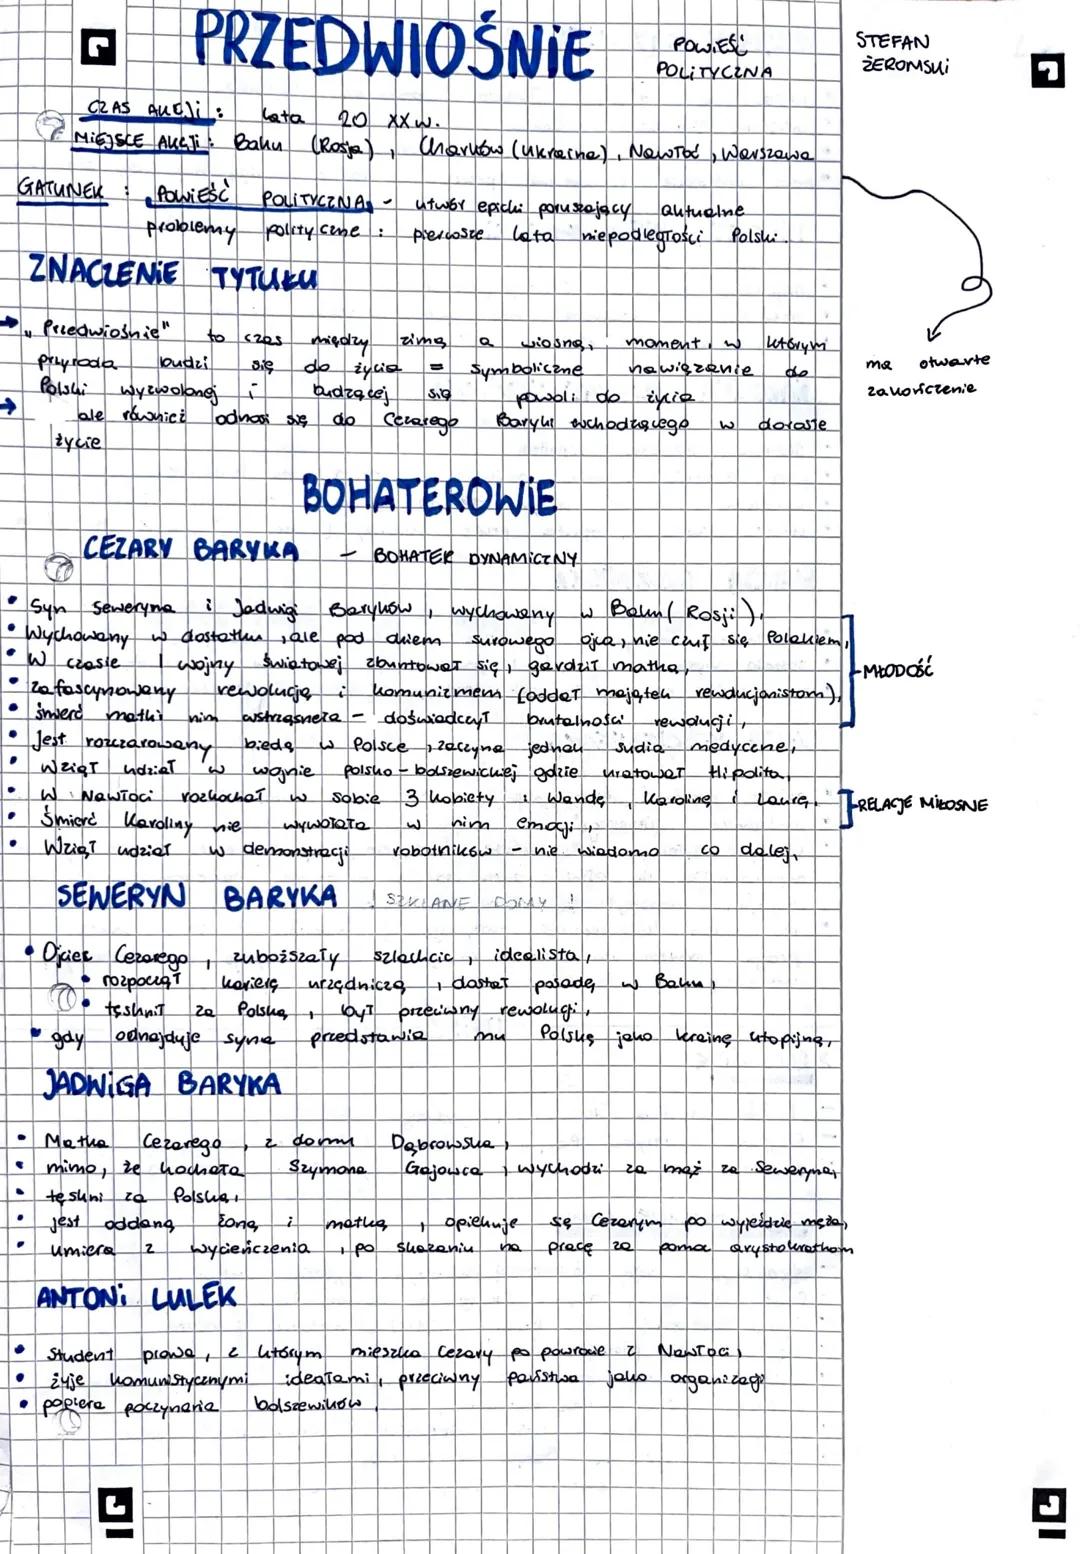 PRZEDWIOŚNIE
POWIEŚĆ
POLITYCZNA
STEFAN
ŻEROMSKI
CZAS AKCJI : lata 20 XX w.
MIEJSCE AKCJI : Baku (Rosja), Charków (Ukraina), Nawłoć, Warszawa
GATUNEK : POWIEŚĆ POLITYCZNA - utwór epicki poruszający aktualne
problemy polityczne : pierwsze lata niepodległości Polski.
ma otwarte
zakończenie
ZNACZENIE TYTUŁU
→ „Przedwiośnie" to czas między zimą a wiosną, moment, w którym
przyroda budzi się do życia = symboliczne nawiązanie do
Polski wyzwolonej i budzącej się powoli do życia
→ ale również odnosi się do Cezarego Baryki wchodzącego w dorosłe
życie
BOHATEROWIE
CEZARY BARYKA - BOHATER DYNAMICZNY
• Syn Seweryna i Jadwigi Baryków, wychowany w Baku (Rosji),
• Wychowany w dostatku, ale pod okiem surowego ojca, nie czuł się Polakiem,
• W czasie I wojny światowej zbuntował się, gardził matką,
• zafascynowany rewolucją i komunizmem (oddał majątek rewolucjonistom),
• śmierć matki nim wstrząsnęła - doświadczył brutalności rewolucji,
MŁODOŚĆ
• Jest rozczarowany biedą w Polsce, zaczyna jednak sudia medyczne,
• Wziął udział w wojnie polsko-bolszewickiej gdzie uratował Hipolita,
• W Nawłoci rozkochał w sobie 3 kobiety : Wandę, Karolinę i Laurę,
RELACJE MIŁOSNE
• Śmierć Karoliny nie wywołała w nim emocji,
• Wziął udział w demonstracji robotników - nie wiadomo co dalej,
SEWERYN BARYKA ! SZKLANE DOMY !
• Ojciec Cezarego, zuboższały szlachcic, idealista,
• rozpoczął karierę urzędniczą, dostał posadę w Baku,
• tęsknił za Polską, był przeciwny rewolucji,
• gdy odnajduje syna przedstawia mu Polskę jako krainę utopijną,
JADWIGA BARYKA
• Matka Cezarego, z domu Dąbrowska,
• mimo, że kochała Szymona Gajowca, wychodzi za mąż za Seweryna,
• tęskni za Polską,
• jest oddaną żoną i matką, opiekuje się Cezarym po wyjeździe męża,
• umiera z wycieńczenia, po skazaniu na pracę za pomoc arystokratkom
ANTONI LULEK
• Student prawa, z którym mieszka Cezary po powrocie z Nawłoci,
• żyje komunistycznymi ideałami, przeciwny państwa jako organizacji
• popiera poczynania bolszewików,